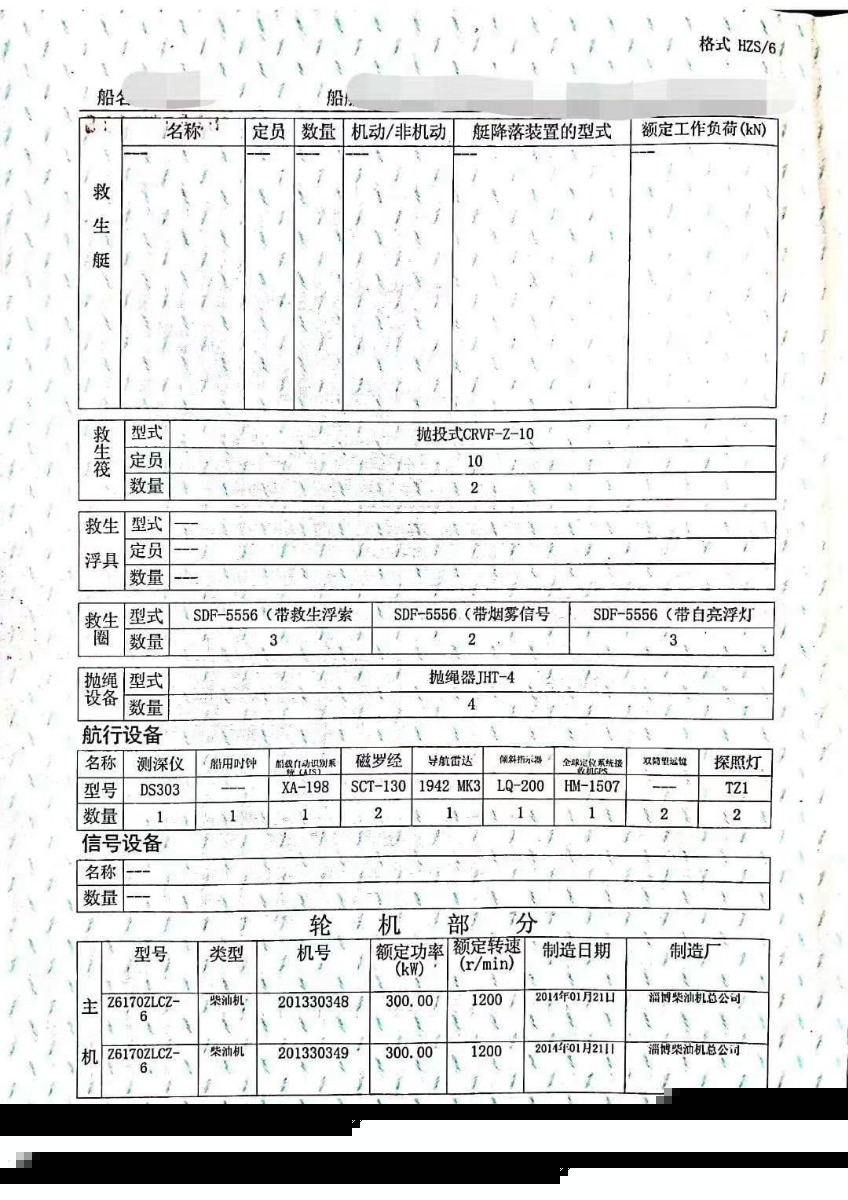 格式 HZS/6
船名
船舶
名称 定员 数量 机动/非机动 艇降落装置的型式 额定工作负荷(kN)
救生艇 --- --- --- --- --- ---
救生筏 型式 抛投式CRVF-Z-10
定员 10
数量 2
救生浮具 型式 ---
定员 ---
数量 ---
救生圈 型式 SDF-5556（带救生浮索 SDF-5556（带烟雾信号 SDF-5556（带自亮浮灯
数量 3 2 3
抛绳设备 型式 抛绳器JHT-4
数量 4
航行设备
名称 测深仪 船用时钟 船载自动识别系统（AIS） 磁罗经 导航雷达 倾斜指示器 全球定位系统接收机GPS 双筒望远镜 探照灯
型号 DS303 --- XA-198 SCT-130 1942 MK3 LQ-200 HM-1507 --- TZ1
数量 1 1 1 2 1 1 1 2 2
信号设备
名称 ---
数量 ---
轮机部分
型号 类型 机号 额定功率(kW) 额定转速(r/min) 制造日期 制造厂
主机 Z6170ZLCZ-6 柴油机 201330348 300.00 1200 2014年01月21日 淄博柴油机总公司
Z6170ZLCZ-6 柴油机 201330349 300.00 1200 2014年01月21日 淄博柴油机总公司